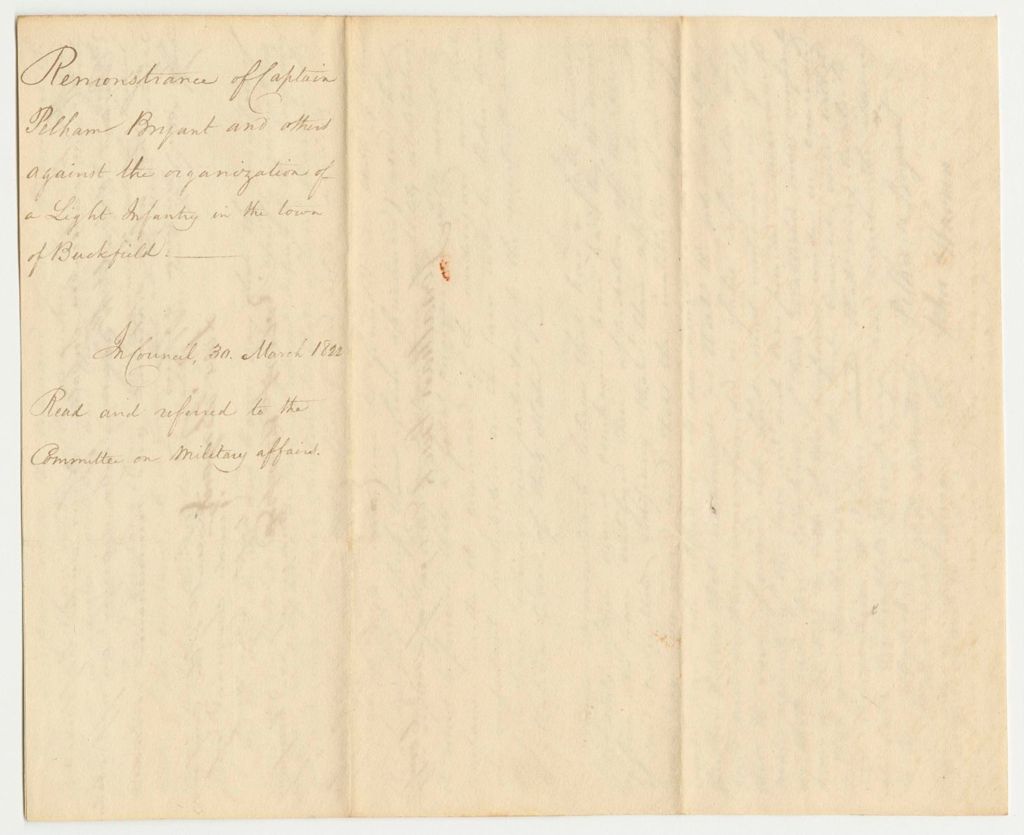 Remonstrance of Captain
Pelham Bryant and others
against the organization of
a Light Infantry in the town
of Buckfield. ———
In Council, 30. March 1822
Read and referred to the
Committee on Military affairs.